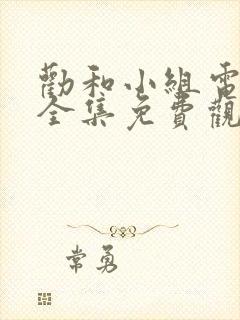 勸和小組電
全集免費觀
常勇